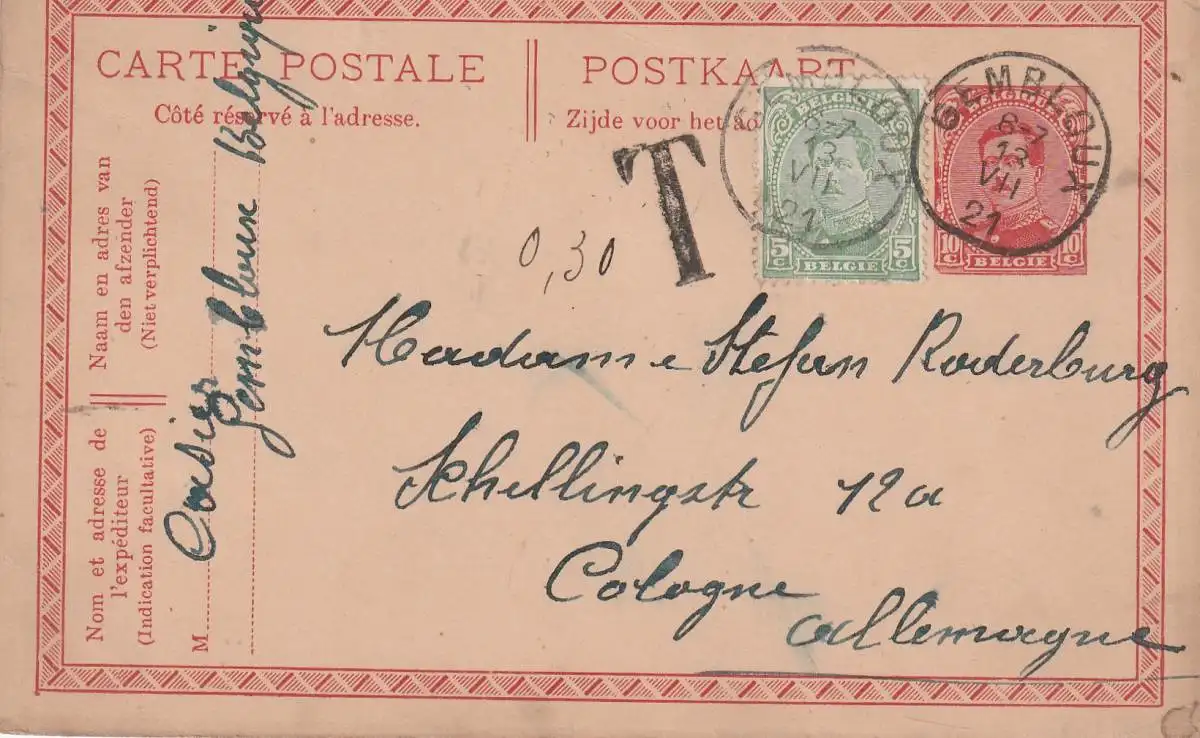 CARTE POSTALE
Côté réservé à l'adresse.
POSTKAART
Zijde voor het
T
0,30
BELGIQUE
5c 5c
BELGIE
GEMBLOUX
8-7
13
VII
21
BELGIQUE
10c 10c
BELGIE
GEMBLOUX
8-7
13
VII
21
Naam en adres van
den afzender
(Niet verplichtend)
Nom et adresse de
l'expéditeur
(Indication facultative)
M
Gembloux Belgique
Madame Stefan Roderburg
Schellingstr 12a
Cologne
Allemagne